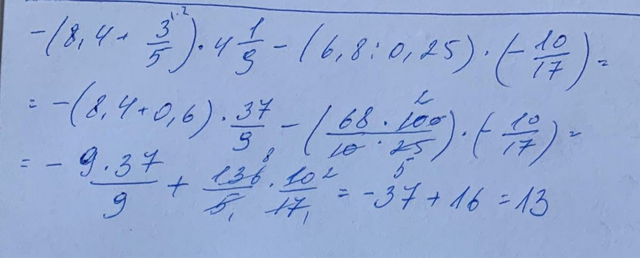 -(8,4 + 3/5^{1·2}) · 4 1/9 - (6,8 : 0,25) · (-10/17) =
= -(8,4 + 0,6) · 37/9 - (68 · 100^2 / 10 · 25_5) · (-10/17) =
= - 9·37/9 + 136^8/5_1 · 10^2/17_1 = -37 + 16 = 13